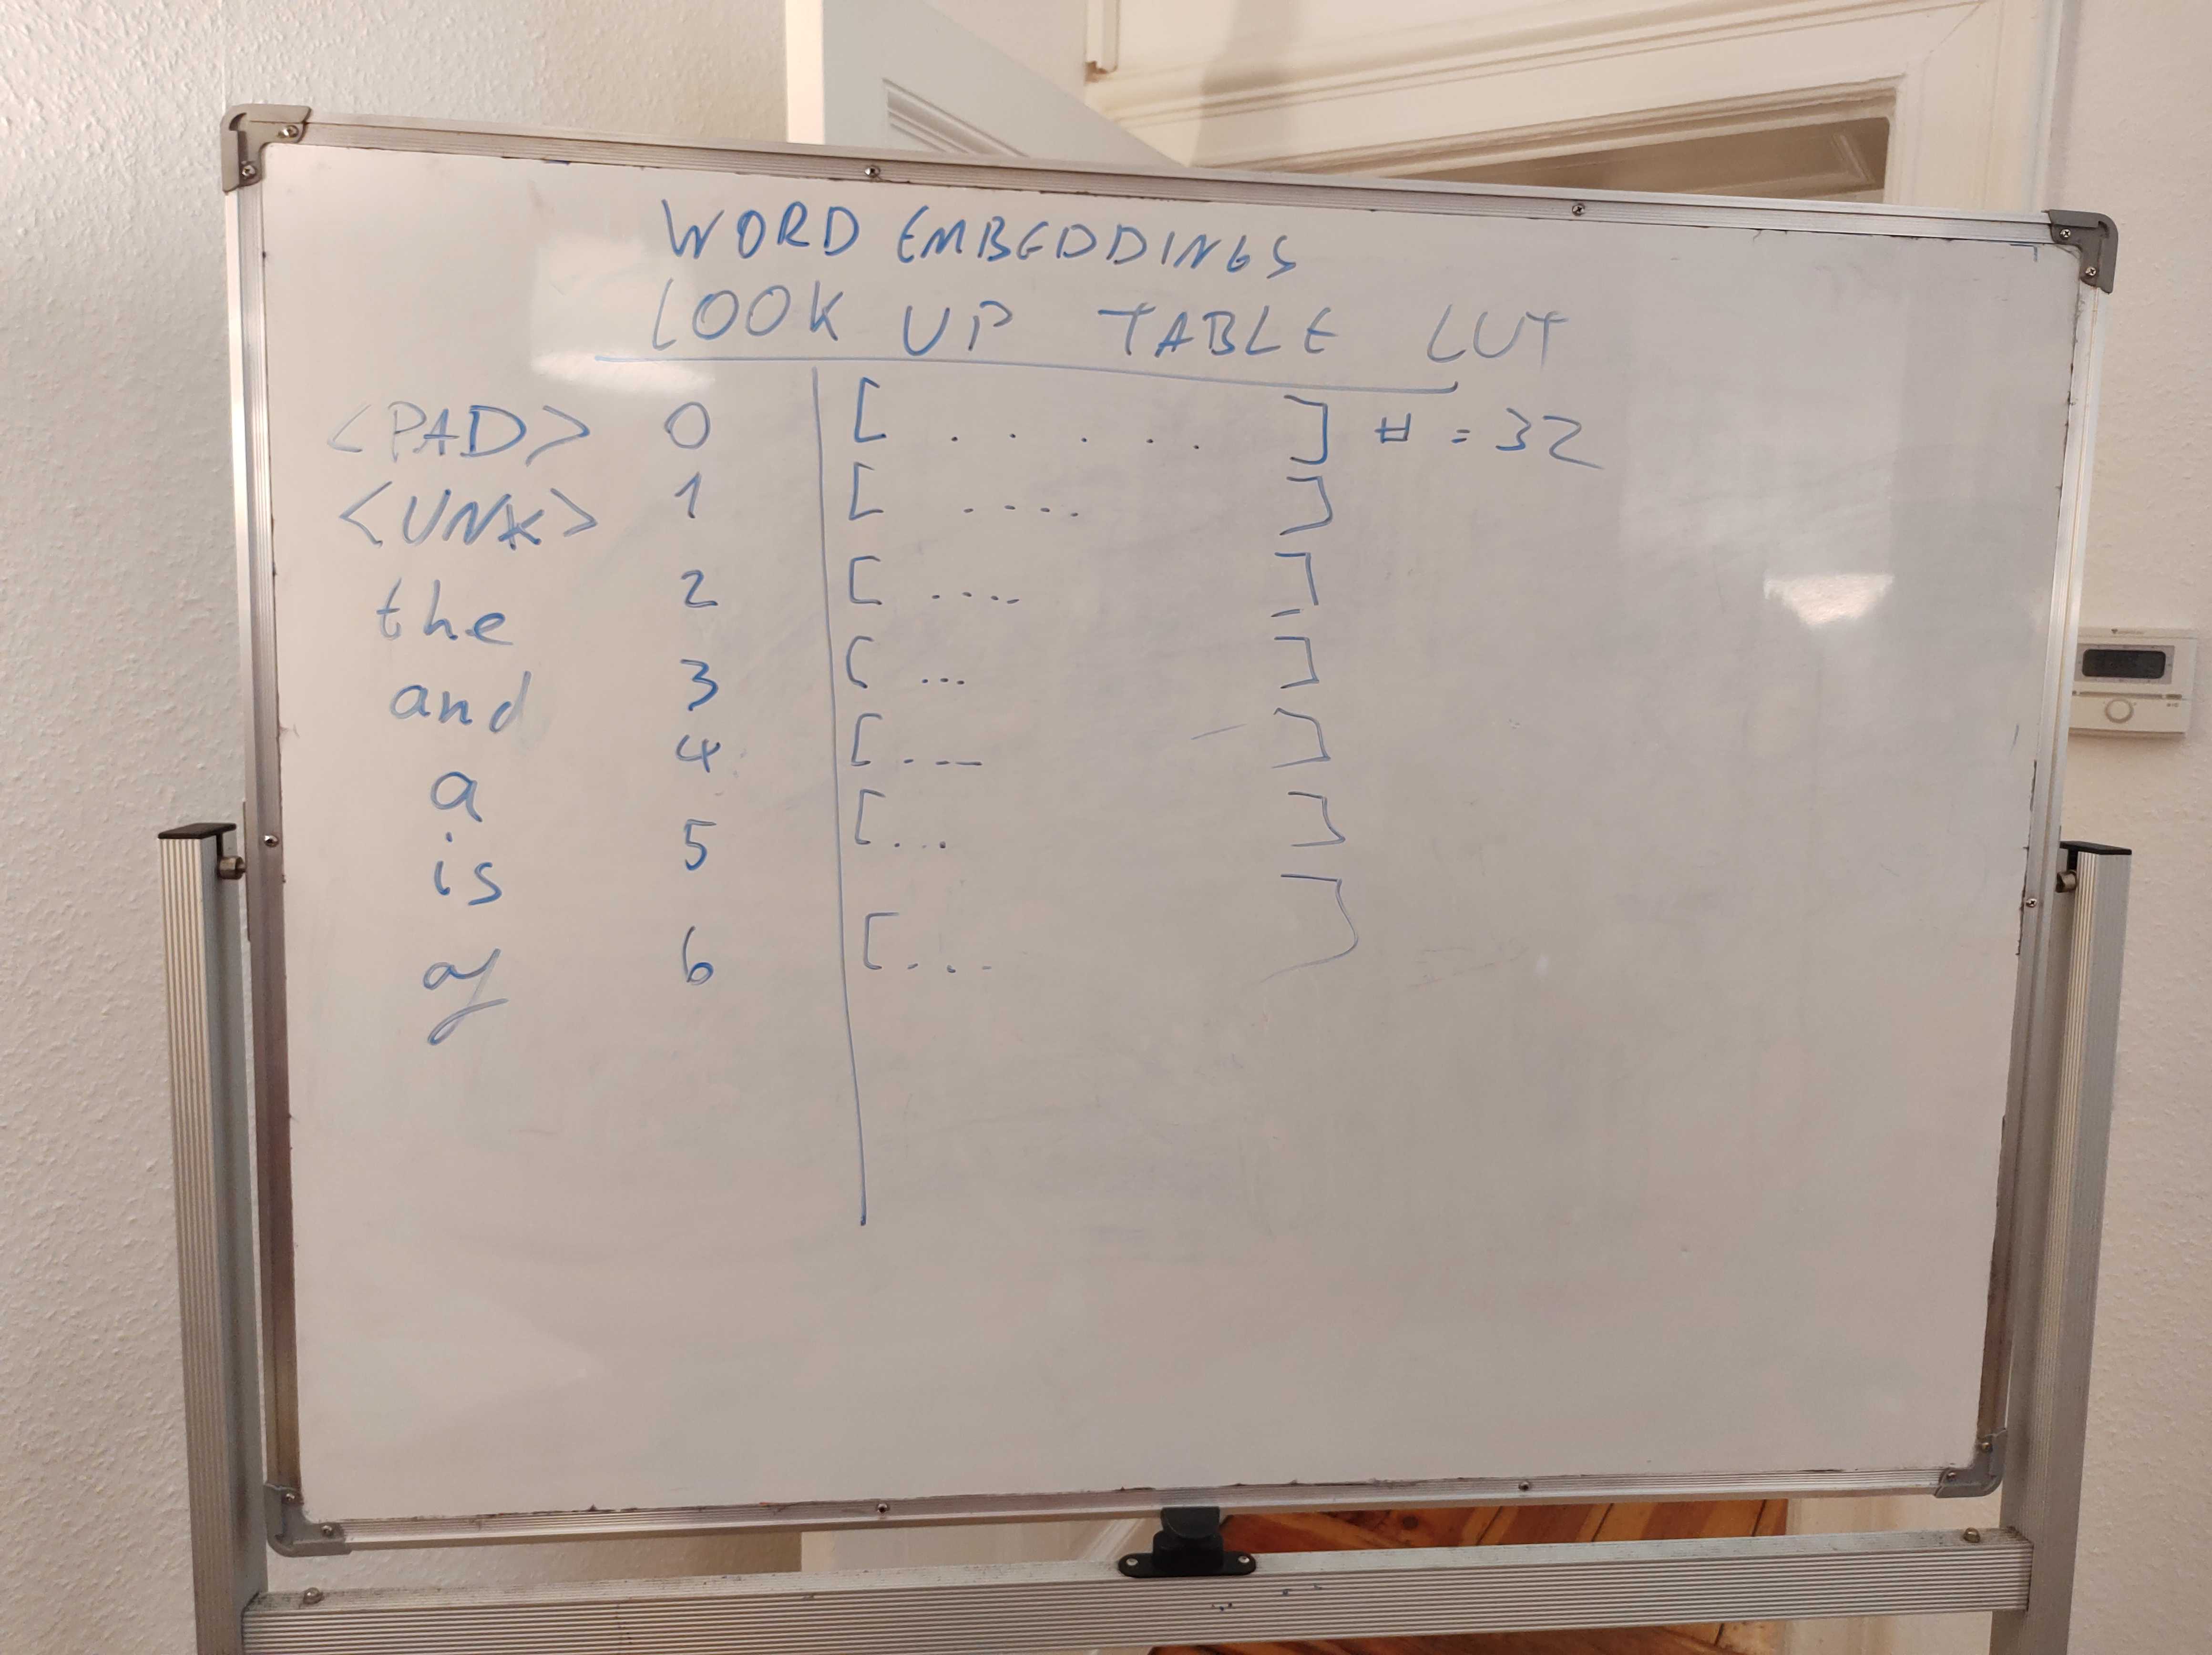 WORD EMBEDDINGS
LOOK UP TABLE LUT
<PAD> 0 [ . . . . . ] # = 32
<UNK> 1 [ .... ]
the 2 [ .... ]
and 3 [ ... ]
a 4 [ ... ]
is 5 [ ... ]
of 6 [ ... ]